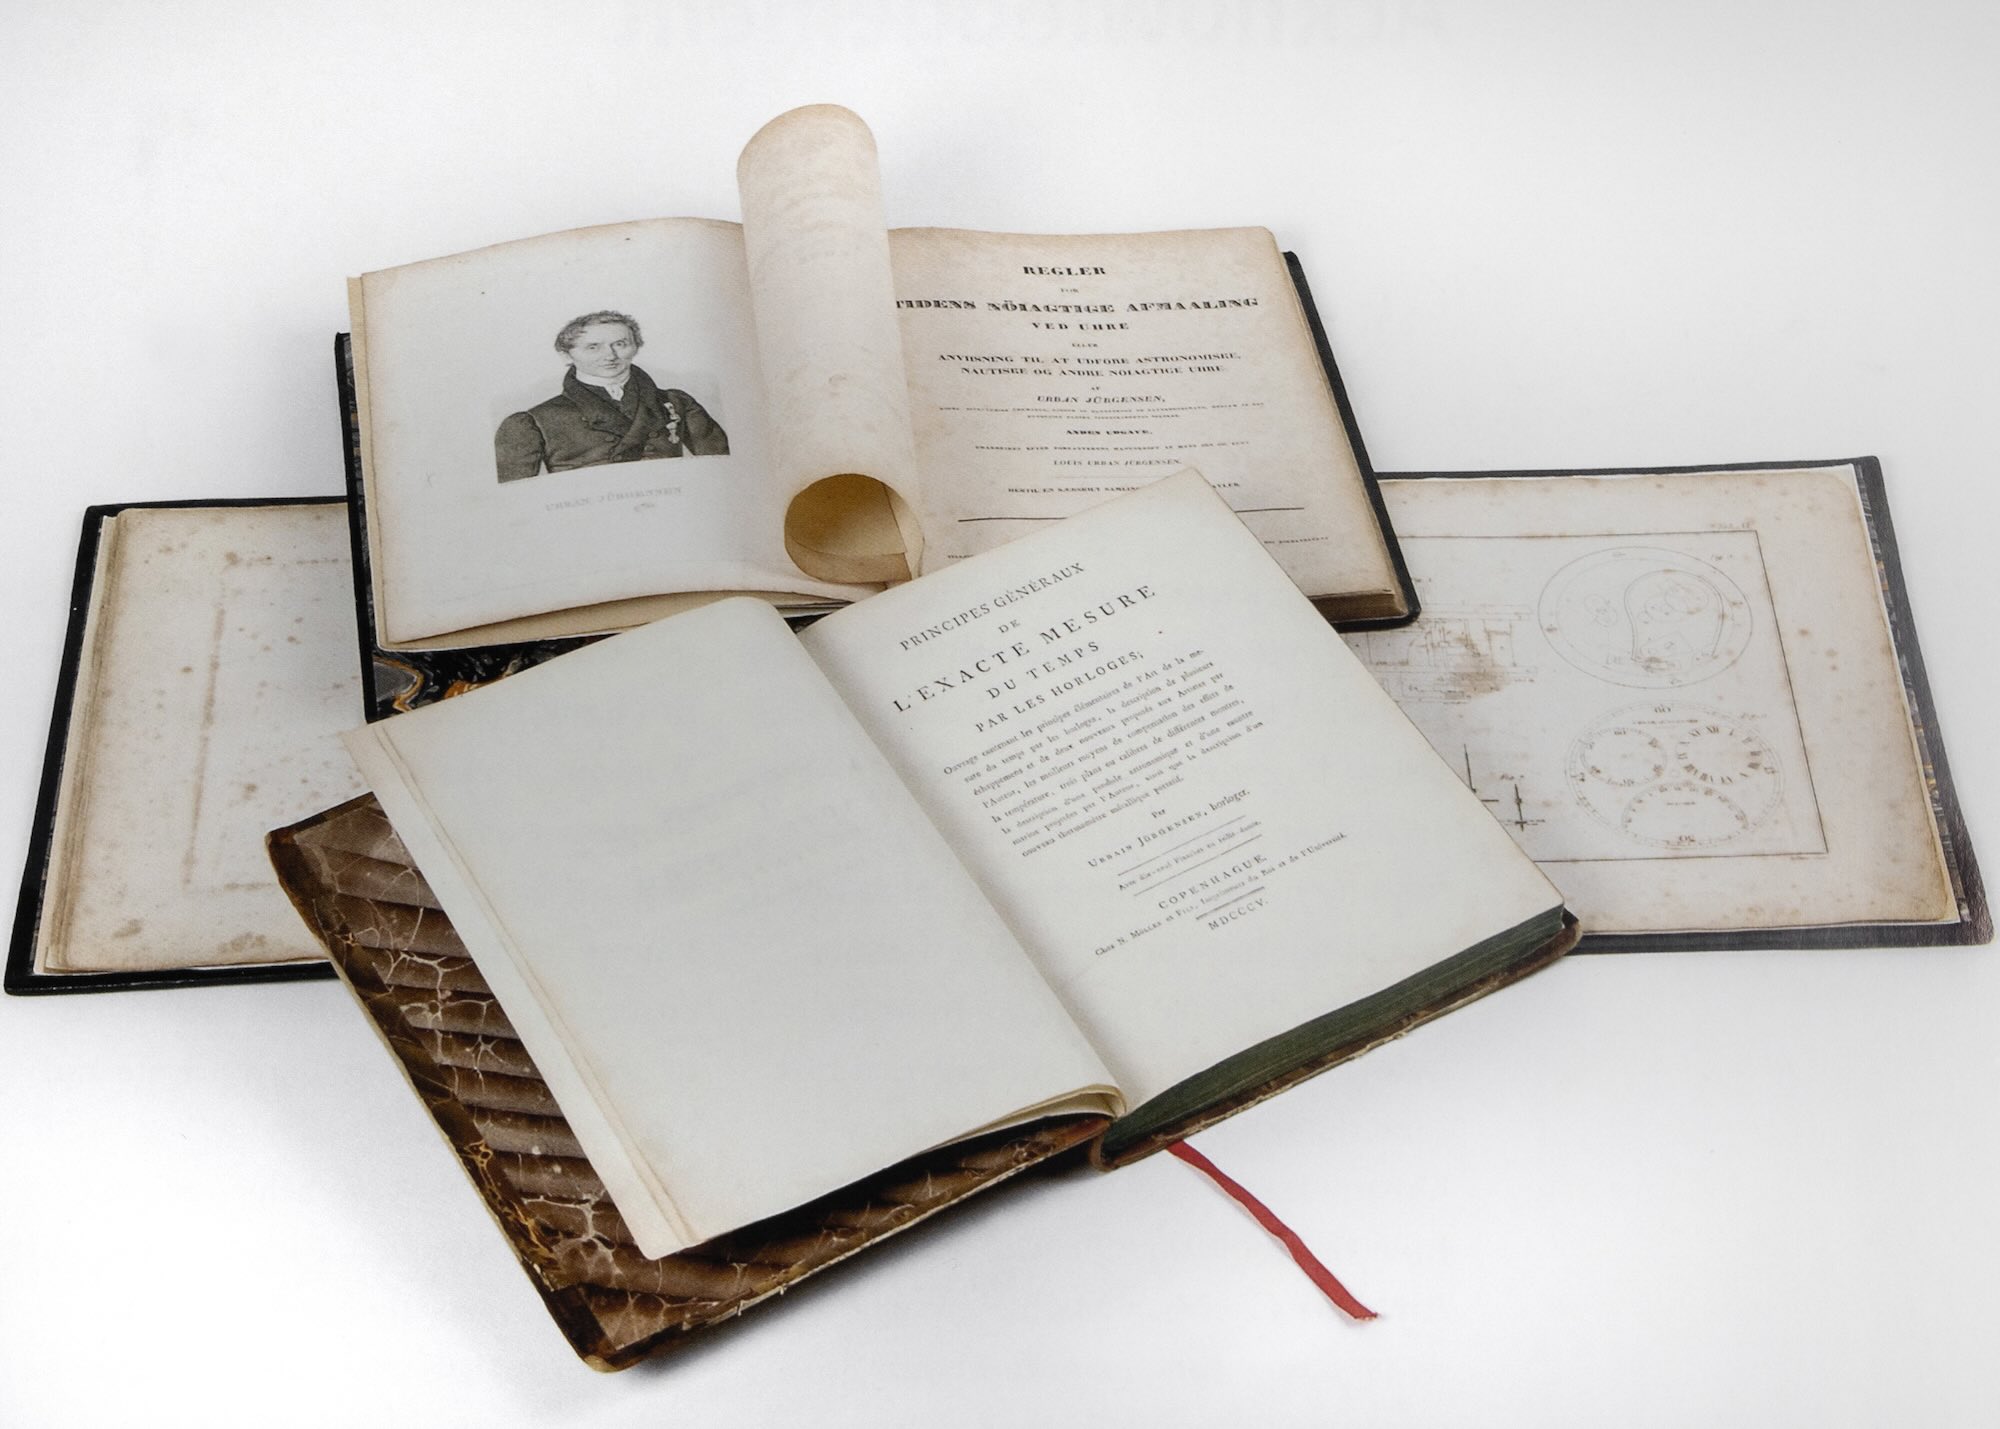 REGLER
FOR
TIDENS NÖIAGTIGE AFMAALING
VED UHRE
ELLER
ANVIISNING TIL AT UDFÖRE ASTRONOMISKE,
NAUTISKE OG ANDRE NÖIAGTIGE UHRE
AF
URBAN JÜRGENSEN,
ANDEN UDGAVE,
LOUIS URBAN JÜRGENSEN.
HERTIL EN SÆRSKILT SAMLING
URBAN JÜRGENSEN
PRINCIPES GÉNÉRAUX
DE
L'EXACTE MESURE
DU TEMPS
PAR LES HORLOGES;
Ouvrage contenant les principes élémentaires de l'Art de la me-
sure du temps par les horloges, la description de plusieurs
échappemens et de deux nouveaux proposés aux Artistes par
l'Auteur, les meilleurs moyens de compensation des effets de
la température, trois plans ou calibres de différentes montres,
la description d'une pendule astronomique et d'une montre
marine proposées par l'Auteur, ainsi que la description d'un
nouveau thermomètre métallique portatif.
Par
URBAIN JÜRGENSEN, horloger.
Avec dix-neuf Planches en taille-douce.
COPENHAGUE
Chez N. MÖLLER et FILS, Imprimeurs du Roi et de l'Université.
MDCCCV.
60